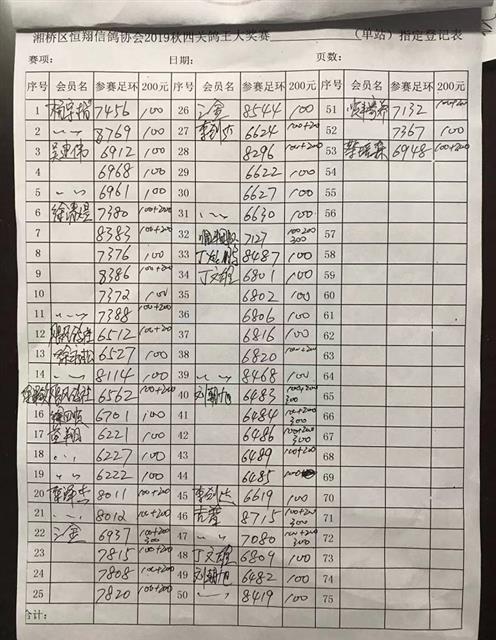 湘桥区恒翔信鸽协会2019秋四关鸽王大奖赛（单站）指定登记表
赛项： 日期： 页数：
序号 会员名 参赛足环 200元 序号 会员名 参赛足环 200元 序号 会员名 参赛足环 200元
1 7456 100 26 江金 8544 100 51 7132 100+200
2 〃 8769 100 27 李剑杰 6624 100+200 52 7367 100
3 吴更伟 6912 100 28 8296 100+200 53 6948 100+200
4 6968 100 29 6622 100 54
5 〃 6961 100 30 6627 100 55
6 7380 100+200 31 〃 6630 100 56
7 8383 100+200 32 7127 100 200 300 57
8 7376 100 33 8487 100 58
9 8386 100+200 34 丁文雄 6801 100 59
10 7372 100 35 6802 100 60
11 〃 7388 100+200 36 6806 100 61
12 6512 100+200 37 6816 100 62
13 6527 100 38 6820 100+200 63
14 〃 8114 100 39 〃 8468 100 64
15 6562 100+200 40 刘朝旭 6483 100+200 300 65
16 6701 100 41 6484 100+200 300 66
17 黄翔 6221 100 42 6486 100+200 300 67
18 〃 6227 100 43 6489 100+200 68
19 〃 6222 100 44 6485 100 69
20 李泽杰 8011 100+200 45 李剑杰 6619 100 70
21 〃 8012 100+200 46 8715 100+200 300 71
22 江金 6937 100+200 300 47 〃 7080 100+200 300 72
23 7815 100+200 48 丁文雄 6809 100 73
24 7808 100+200 49 刘朝旭 6482 100 74
25 7820 100+200 50 〃 8419 100 75
合计：